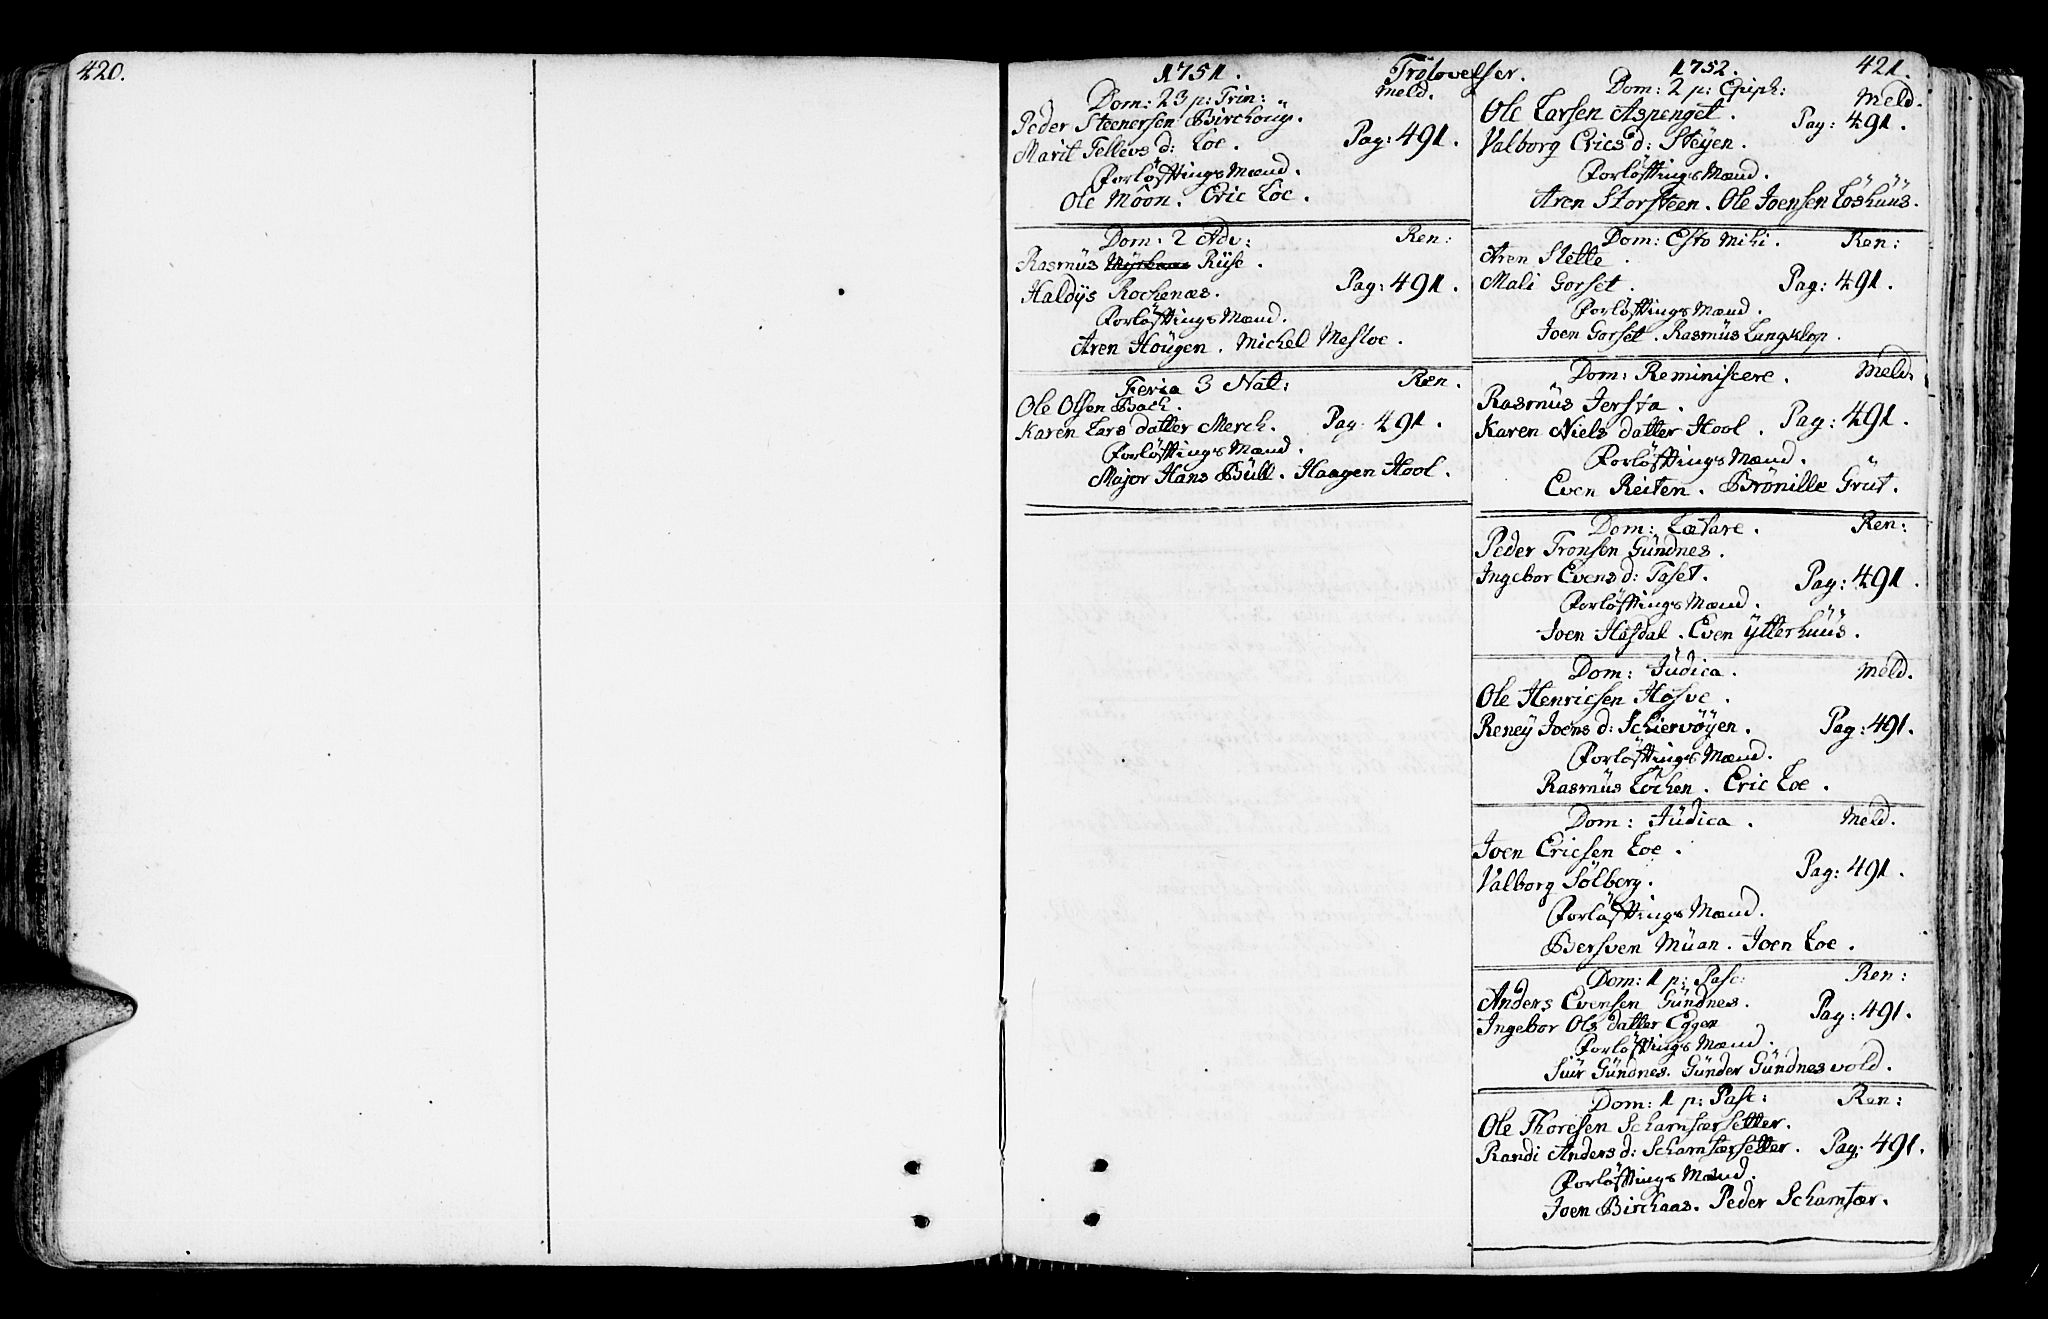 420.
1751. Trolovelser.
Dom: 23 p: Trin: Meld.
Peder Steenersen Birchoug.
Marit Tellevs d: Loe. Pag: 491.
Forløftings Mænd.
Ole Moon. Eric Loe.
Dom: 2 Adv: Ren:
Rasmus Ruse.
Haldys Rochenæs. Pag: 491.
Forløftings Mænd.
Aren Hougen. Michel Mesloe.
Feria 3 Nat: Ren.
Ole Olsen Bach.
Karen Lars datter Merch. Pag. 491.
Forløftings Mænd.
Major Hans Büll. Haagen Hool.
1752. 421.
Dom: 2 p: Epiph: Meld.
Ole Larsen Aspenget.
Valborg Erics d: Steyen. Pag: 491.
Forløftings Mænd.
Aren Storsteen. Ole Joensen Löshüüs.
Dom: Esto Mihi. Ren:
Aren Slette.
Mali Gorset. Pag: 491.
Forløftings Mænd.
Joen Gorset. Rasmüs Langklop.
Dom: Reminiscere. Meld.
Rasmüs Jersta.
Karen Niels datter Hool. Pag: 491.
Forløftings Mænd.
Even Reiten. Brønille Grüt.
Dom: Lætare. Ren:
Peder Tronsen Gündnes.
Ingebor Evens d: Taset. Pag: 491.
Forløftings Mænd.
Joen Hasdal. Even Ytterhüüs.
Dom: Jüdica. Meld.
Ole Henricsen Hosve.
Reney Joens d: Schiervøyen. Pag: 491.
Forløftings Mænd.
Rasmüs Löchen. Eric Loe.
Dom: Jüdica. Meld.
Joen Ericsen Loe.
Valborg Solberg. Pag: 491.
Forløftings Mænd.
Bersven Müan. Joen Loe.
Dom: 1 p: Pasc: Ren:
Anders Evensen Gündnes.
Ingebor Ols datter Eggen Pag: 491.
Forløftings Mænd.
Siür Gündnes. Günder Gündnesvold.
Dom: 1 p: Pasc: Ren:
Ole Thoresen Scharnsærsetter.
Randi Anders d: Scharnsærsetter. Pag: 491.
Forløftings Mænd.
Joen Birchaas. Peder Scharnsær.